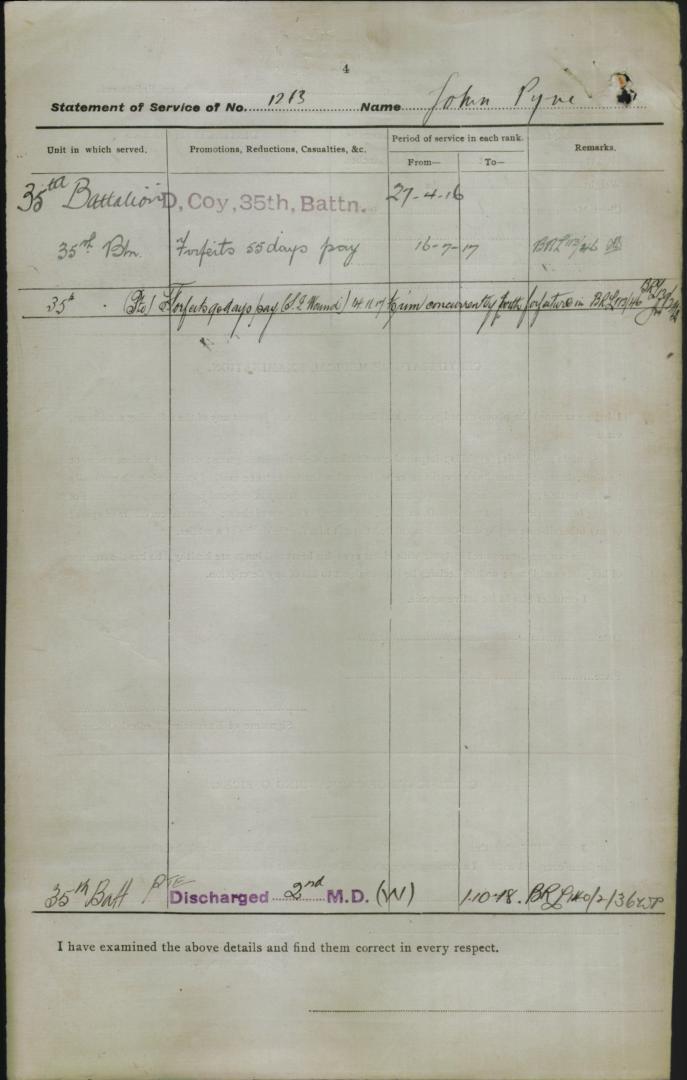 4
Statement of Service of No. 1213 Name John Pyne
Unit in which served. Promotions, Reductions, Casualties, &c. Period of service in each rank. Remarks.
From— To—
35th Battalion D, Coy, 35th, Battn. 27-4-16
35th Bn. Forfeits 55 days pay 16-7-17 BRL 113/46
35th (Pte) Forfeits 90 days pay (S.I. Wound) 14.11.17 to run concurrently with forfeiture in BRL 113/46
35th Batt PTE Discharged 2nd M.D. (W) 1-10-18. BRL 140/2/36
I have examined the above details and find them correct in every respect.